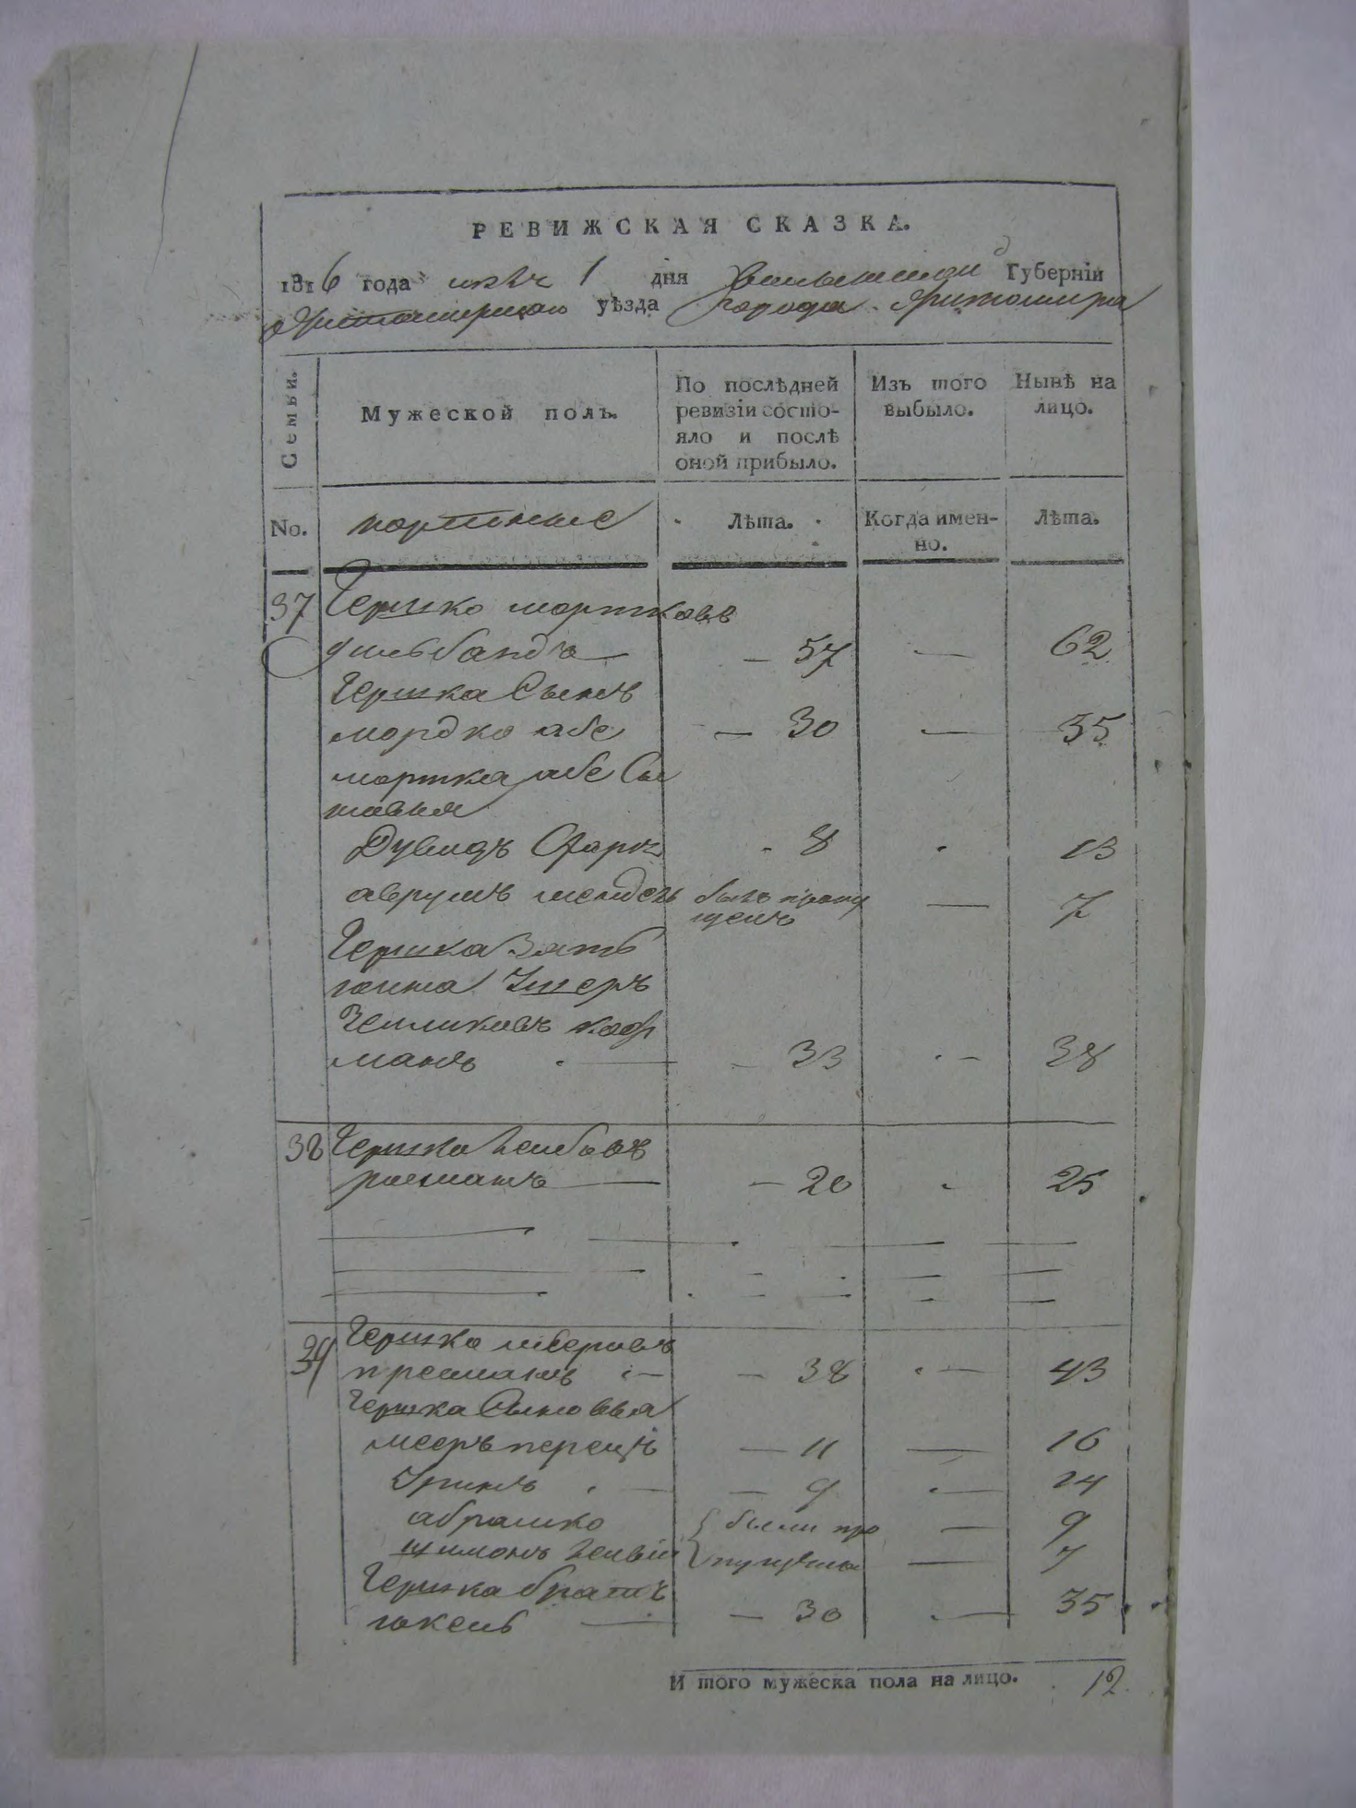 РЕВИЖСКАЯ СКАЗКА.
1816 года 1 дня Волынской Губерніи
Житомирского уѣзда города Житомира
Семьи.
Мужеской полъ.
По послѣдней ревизіи состо-
яло и послѣ оной прибыло.
Изъ того выбыло.
Нынѣ на лицо.
No. портные Лѣта. Когда имен-
но. Лѣта.
37 Гершко мортковъ
— 57 — 62
Гершка Сынъ
мордко абе — 30 — 35
мортка абе Сы
новья
Дувидъ - 8 - 13
аврумъ мендель былъ пропу
щенъ — 7
Гершка Зять
Ушеръ
манъ - — 33 - — 38
38 Гершко Лейбовъ
— 20 - 25
39 Гершко
— 38 - — 43
Гершка Сыновья
мееръ перецъ — 11 — 16
— 9 - — 14
абрамко были про — 9
шимонъ пущены — 7
Гершка братъ
— 30 - — 35
И того мужеска пола на лицо. 12